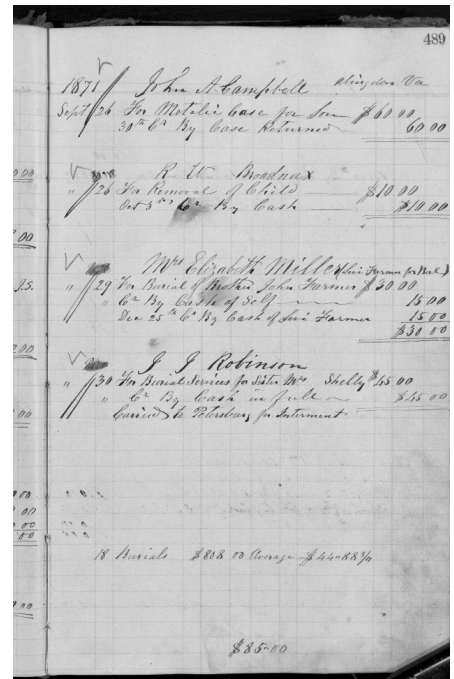 489
1871 John A Campbell Abingdon Va
Sept 26 For Metalic Case for Son $60.00
30th Cr By Case Returned 60 00
R W Broadnax
" 26 For Removal of Child $10.00
Oct 3rd Cr By Cash $10.00
Mrs Elizabeth Miller
" 29 For Burial of Brother John Farmer $30.00
" Cr By Cash of Self 15 00
Dec 25th Cr By Cash of Farmer 15.00
$30 00
J J Robinson
" 30 For Burial Services for Sister Mrs Shelly $45 00
" Cr By Cash in full $45 00
Carried to Petersburg for Interment
18 Burials $808 00 Average $44
$85.00